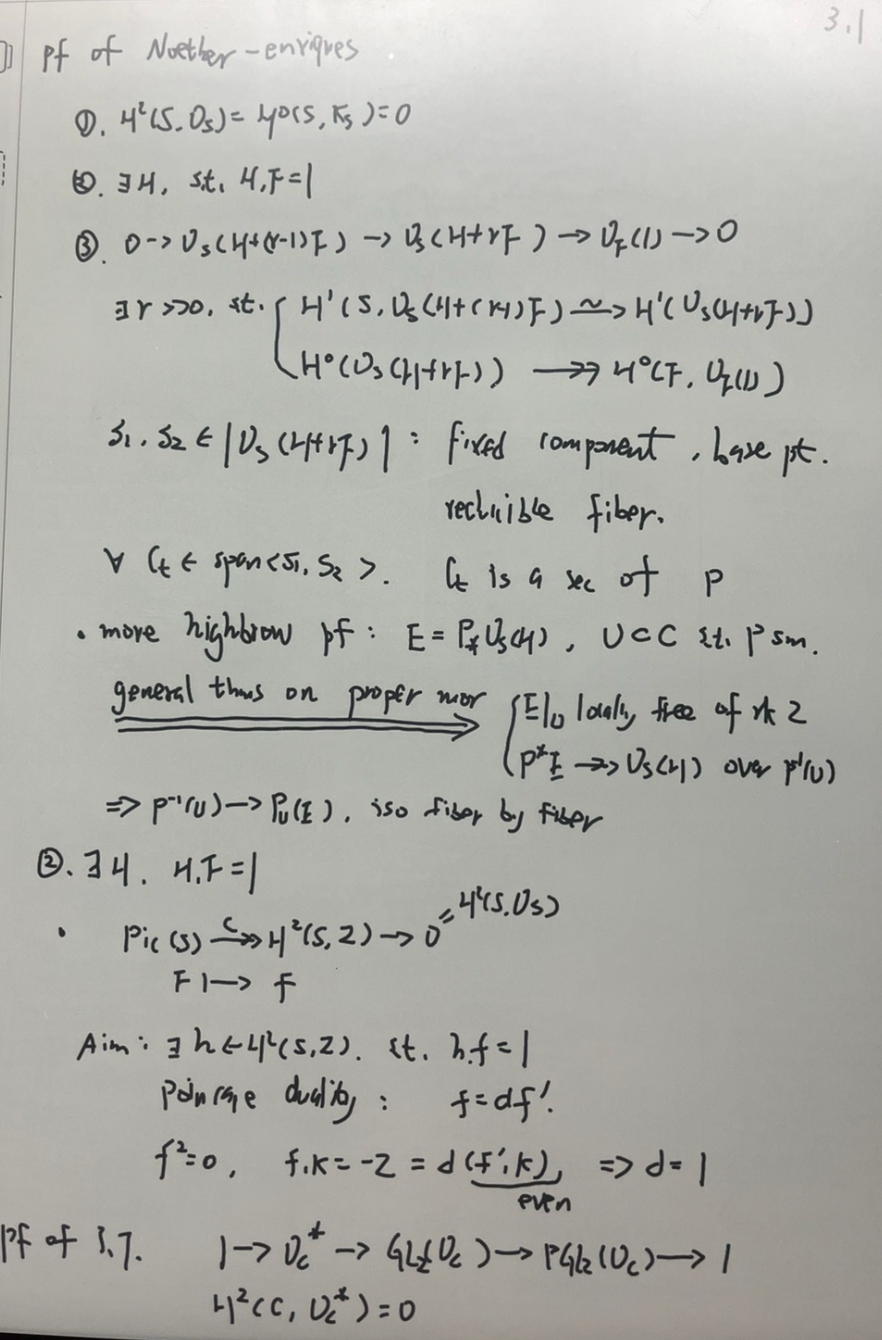 3.1
pf of Noether-enriques
①. H²(S.O_S) = H⁰(S, K_S) = 0
②. ∃H, s.t. H.F=1
③. 0 -> O_S(H+(r-1)F) -> O_S(H+rF) -> O_F(1) -> 0
∃r>>0, st. { H'(S, O_S(H+(r-1)F) ~> H'(O_S(H+rF))
H⁰(O_S(H+rF)) ->> H⁰(F, O_F(1))
S₁, S₂ ∈ |O_S(H+rF)| : fixed component, base pt.
reducible fiber.
∀ C_t ∈ span<S₁, S₂>. C_t is a sec of p
• more highbrow pf: E = P_*O_S(H), U⊂C st. p sm.
general thms on proper mor => { E|_U locally free of rk 2
p*E ->> O_S(H) over p⁻¹(U)
=> p⁻¹(U) -> P_U(E), iso fiber by fiber
②. ∃H. H.F=1
• Pic(S) -c->> H²(S,Z) -> 0 = H²(S.O_S)
F |-> f
Aim: ∃h∈H²(S,Z). st. h.f=1
Poincare duality: f=df'.
f²=0, f.k=-2=d(f'.k), => d=1
even
pf of 3.7. 1 -> O_C* -> GL₂(O_C) -> PGL₂(O_C) -> 1
H²(C, O_C*)=0